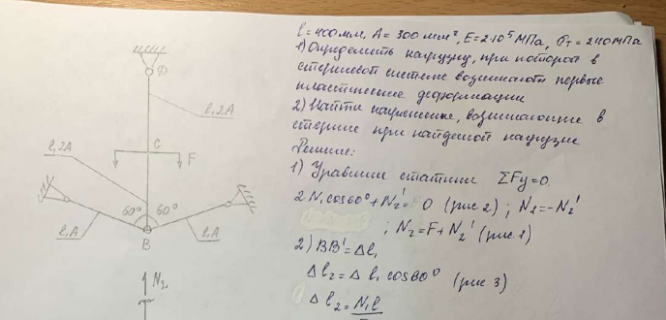 l=400мм, A=300мм², E=2·10⁵МПа, σт=240МПа
1) Определить нагрузку, при которой в
стержневой системе возникают первые
пластические деформации
2) Найти напряжения, возникающие в
стержне при найденой нагрузке
Решение:
1) Уравнение статики ΣFy=0.
2N₁cos60°+N₂'=0 (рис 2); N₁=-N₂'
; N₂=F+N₂' (рис.1)
2) BB'=Δl₁
Δl₂=Δl₁cos60° (рис.3)
Δl₂=N₁l
D
l,2A
C
F
l,2A
60°
60°
l,A
B
l,A
N₂